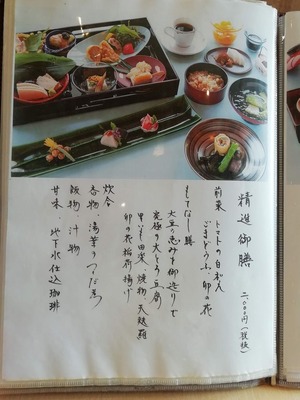 精進御膳 二、〇〇〇円(税抜)
前菜 トマトの白和え
ごまどうふ、卯の花
もてなし膳
大豆の恵みを御造りで
究極の大とろ豆腐
里いも田楽 焼物 天麩羅
卯の花稲荷揚げ
炊合
香物、湯葉のつくだ煮
飯物 汁物
甘味、地下水仕込珈琲